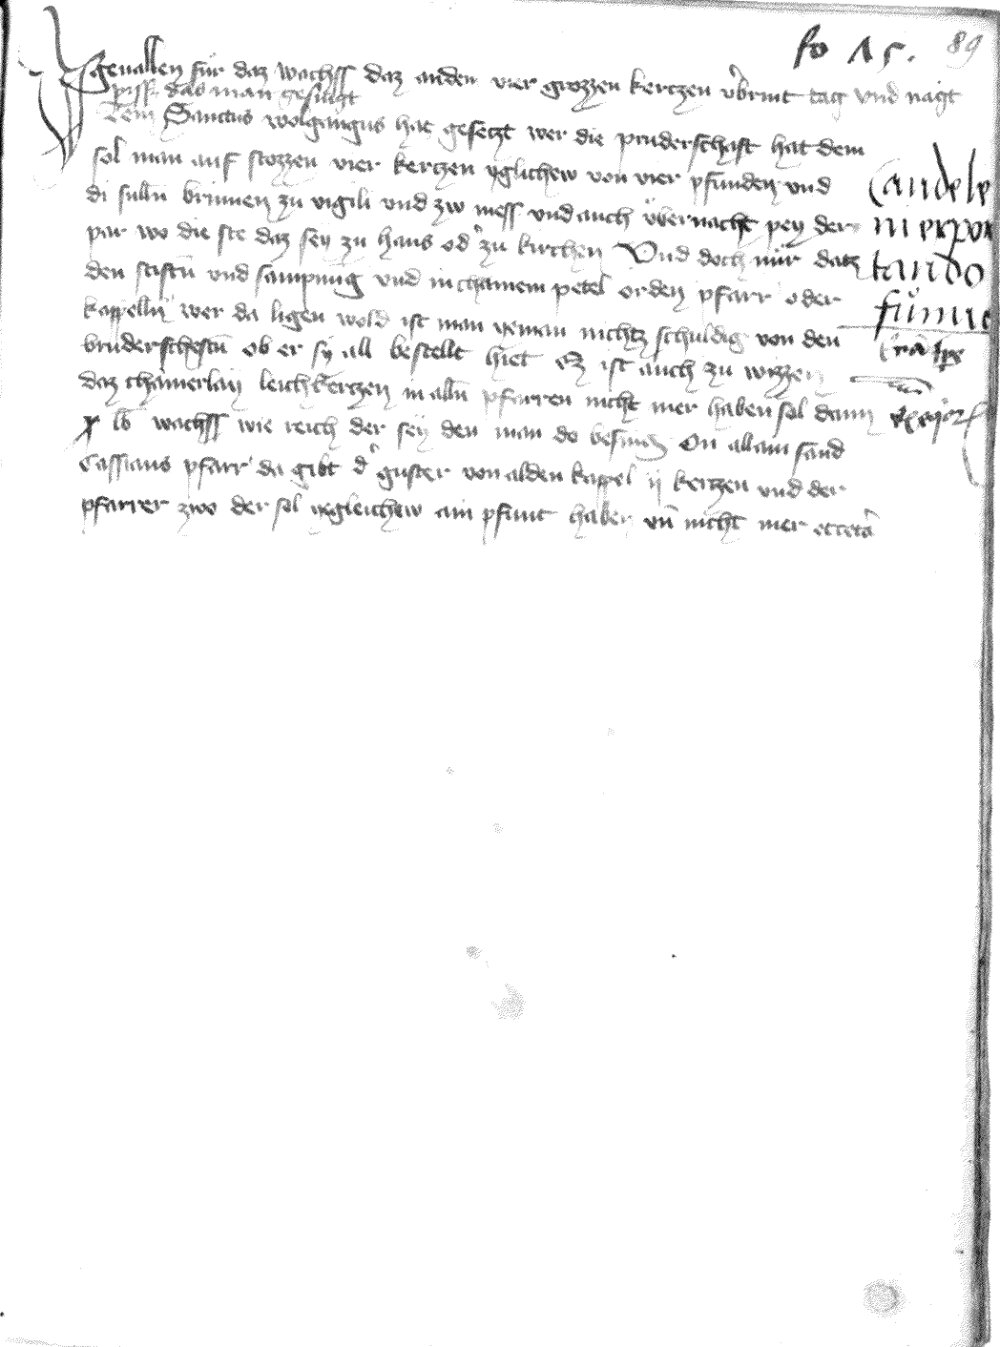 fo 15. 89
geuallen für daz wachss daz anden vier grozzen kertzen vbrint tag vnd nagt
priss das man gesingt
Item Sanctus wolfgangus hat gesetzt wer die pruderschaft hat dem
sol man auf stozzen vier kertzen yglichew von vier pfunden vnd
di sulln brinnen zu vigili vnd zw mess vnd auch vbernacht pey der
par wo die ste daz sey zu haus od zu kirchen Vnd doch nür datz
den stiftn vnd sampnung vnd in chainem petel orden pfarr oder
kappelln wer da ligen wold ist man yeman nichtz schuldig von den
bruderscheftn ob er sy all bestellt hiet Ez ist auch zu wizzen
daz chainerlay leichkertzen in alln pfarren nicht mer haben sol dann
x lb wachss wie reich der sey den man do besing On allain sand
Cassians pfarr da gibt d guster von alden kappel ij kertzen vnd der
pfarrer zwo der sol yegleichew ain pfunt haben vn nicht mer etceta
Candele
in expor
tando
funus